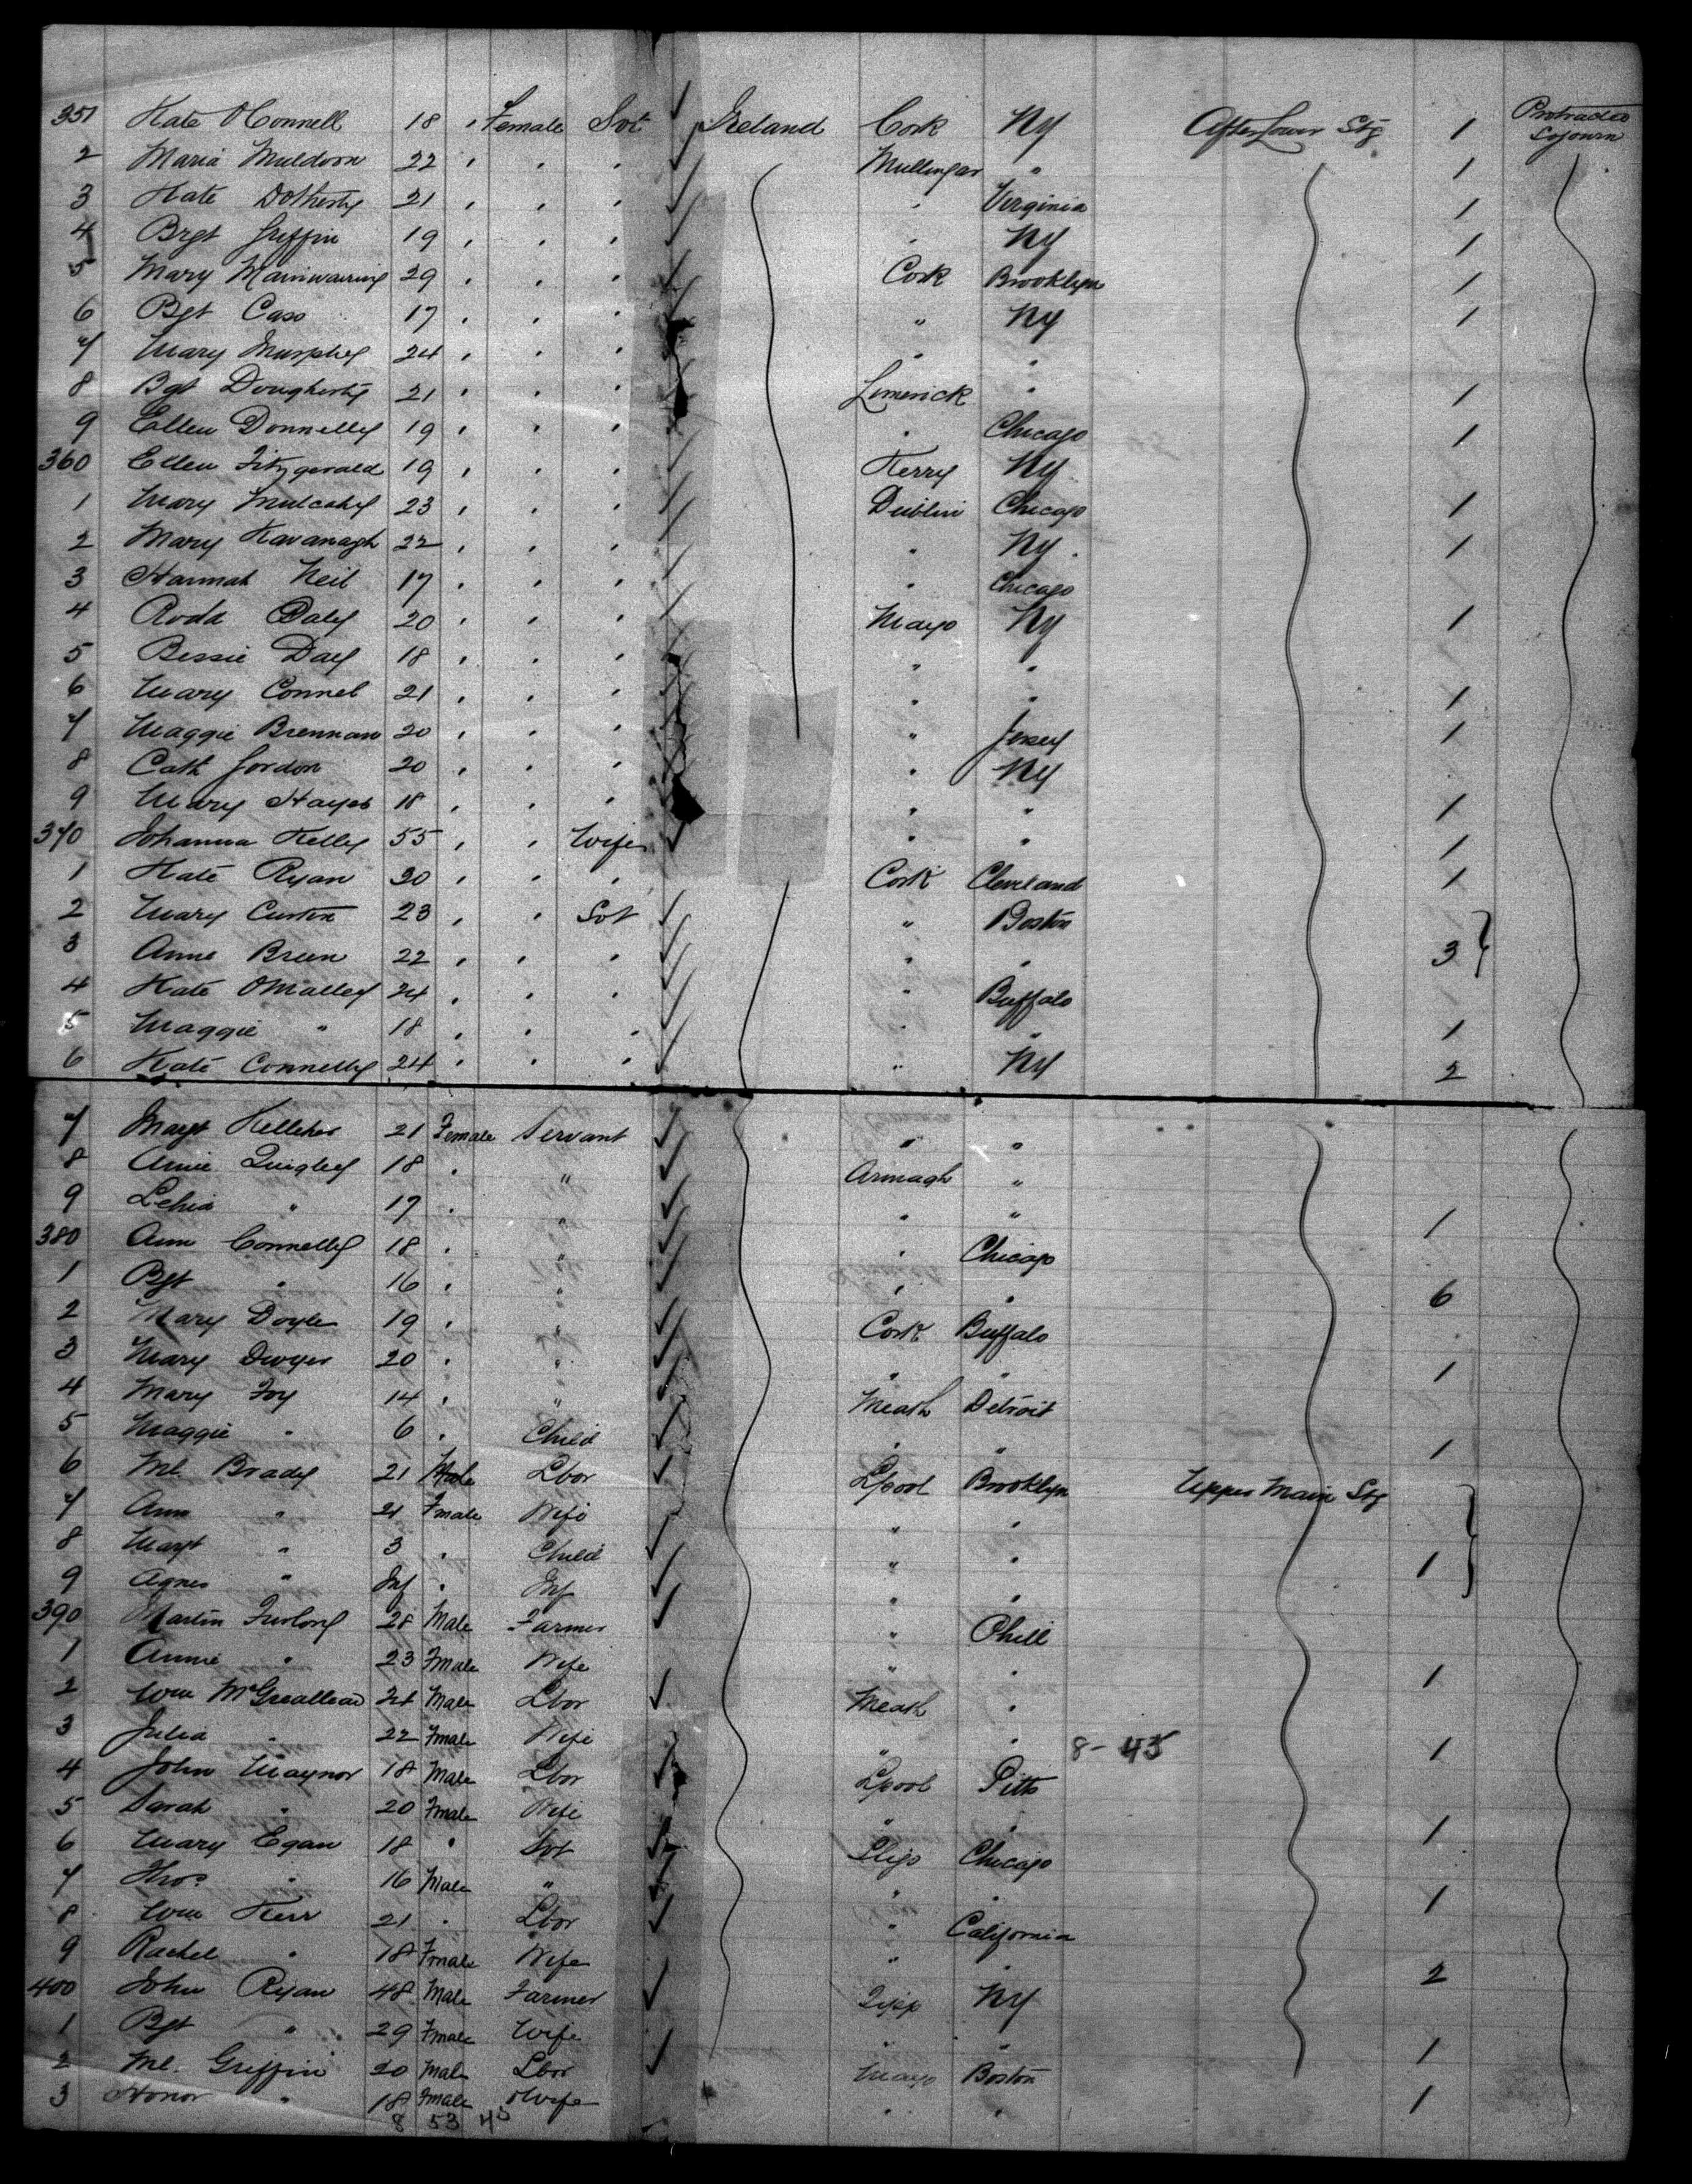 351 Kate OConnell 18 " Female Svt Ireland Cork NY After Lower Stg 1 Protracted Sojourn
2 Maria Muldoon 22 " " " Mullingar " 1
3 Kate Dotherty 21 " " " " Virginia 1
4 Brgt Griffin 19 " " " " NY 1
5 Mary Mainwairing 29 " " " Cork Brooklyn 1
6 Bgt Cass 17 " " " " NY 1
7 Mary Murphy 24 " " " " "
8 Bgt Dougherty 21 " " " Limerick " 1
9 Ellen Donnelly 19 " " " " Chicago 1
360 Ellen Fitzgerald 19 " " " Kerry NY
1 Mary Mulcahy 23 " " " Dublin Chicago 1
2 Mary Kavanagh 22 " " " " NY 1
3 Hannah Neil 17 " " " " Chicago
4 Roda Daly 20 " " " Mayo NY 1
5 Bessie Daly 18 " " " " "
6 Mary Connel 21 " " " " " 1
7 Maggie Brennan 20 " " " " Jersey 1
8 Cath Gordon 20 " " " " NY
9 Mary Hayes 18 " " " " " 1
370 Johanna Kelly 55 " " Wife " " 1
1 Kate Ryan 30 " " " Cork Cleveland 1
2 Mary Curtin 23 " " Svt " Boston
3 Anne Breen 22 " " " " " 3
4 Kate OMalley 24 " " " " Buffalo
5 Maggie " 18 " " " " " 1
6 Kate Connelly 24 " " " " NY 2
7 Margt Kelleher 21 Female Servant " "
8 Annie Quigley 18 " " Armagh "
9 " 17 " " " " 1
380 Ann Connelly 18 " " " Chicago
1 Bgt " 16 " " " " 6
2 Mary Doyle 19 " " Cork Buffalo
3 Mary Dwyer 20 " " " " 1
4 Mary Foy 14 " " Meath Detroit
5 Maggie " 6 " Child " " 1
6 Ml. Brady 21 Male Lbor Lpool Brooklyn Upper Main Stg
7 Ann " 21 Fmale Wife " "
8 Margt " 3 " Child " " 1
9 Agnes " Inf " Inf " "
390 Martin Furlong 28 Male Farmer " Phill
1 Annie " 23 Fmale Wife " " 1
2 Wm 24 Male Lbor Meath "
3 Julia " 22 Fmale Wife " " 8-45 1
4 John Maynor 18 Male Lbor Lpool Pitts
5 Sarah " 20 Fmale Wife " " 1
6 Mary Egan 18 " Svt Sligo Chicago
7 Thos " 16 Male " " " 1
8 Wm Kerr 21 " Lbor " California
9 Rachel " 18 Fmale Wife " " 2
400 John Ryan 48 Male Farmer Tipp NY
1 Bgt " 29 Fmale Wife " " 1
2 Ml. Griffin 20 Male Lbor Mayo Boston
3 Honor " 18 Fmale Wife " " 1
8 53 45